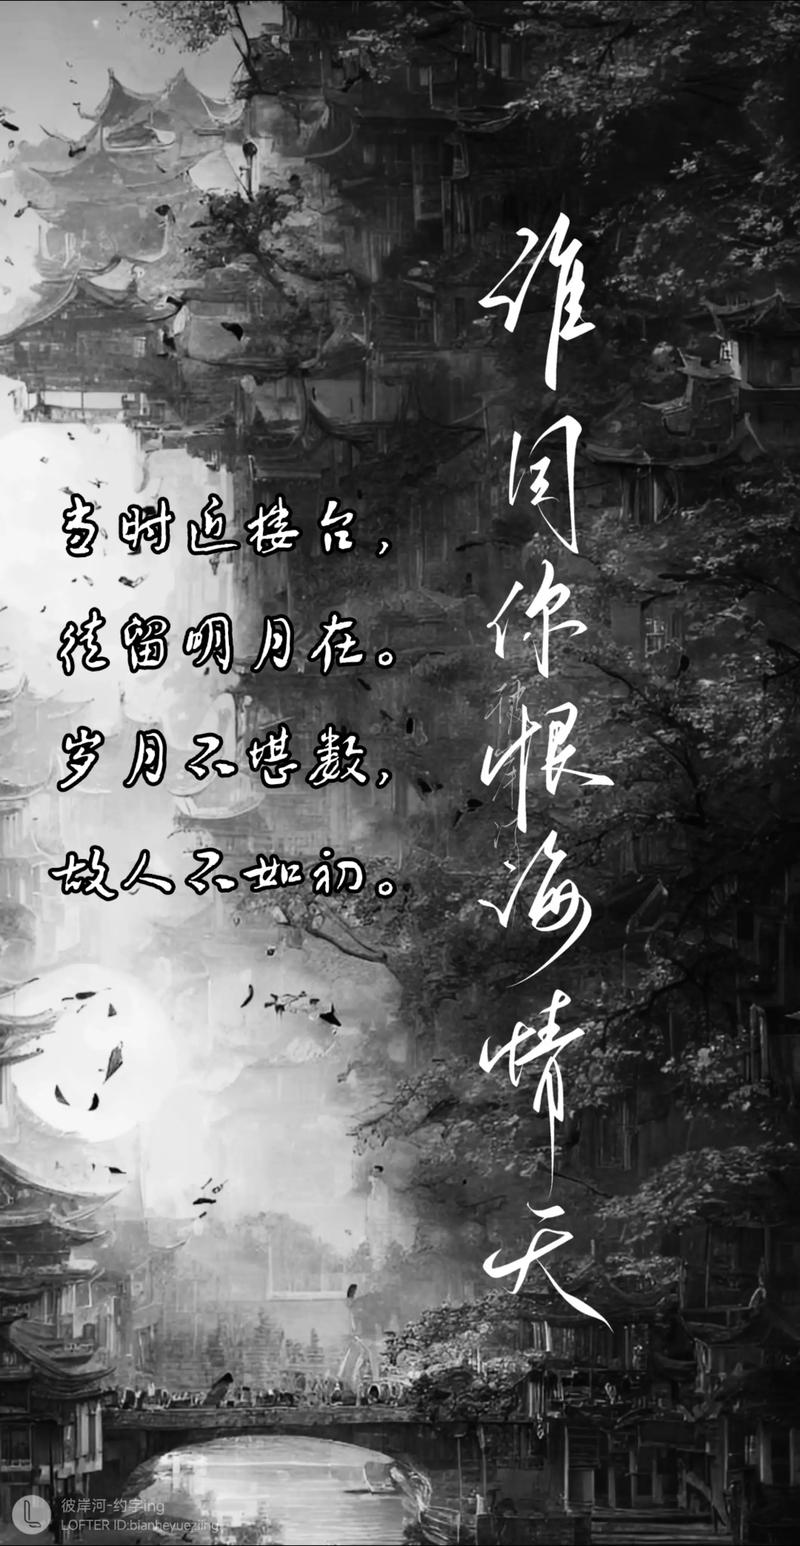 谁同你恨海情天
当时近楼台，
徒留明月在。
岁月不堪数，
故人不如初。
彼岸河-约字ing
LOFTER ID:bianheyueziing